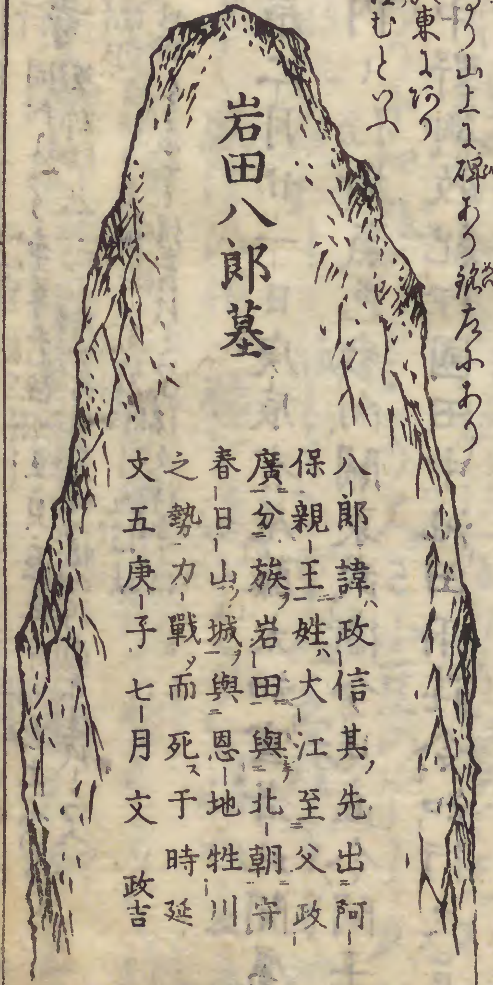 り山上に碑あり銘左にあり
東にあり
むといふ
岩田八郎墓
八郎諱政信其先出阿
保親王姓大江至父政
廣分族岩田與北朝守
春日山城與恩地牲川
之勢力戰而死于時延
文五庚子七月文
政吉